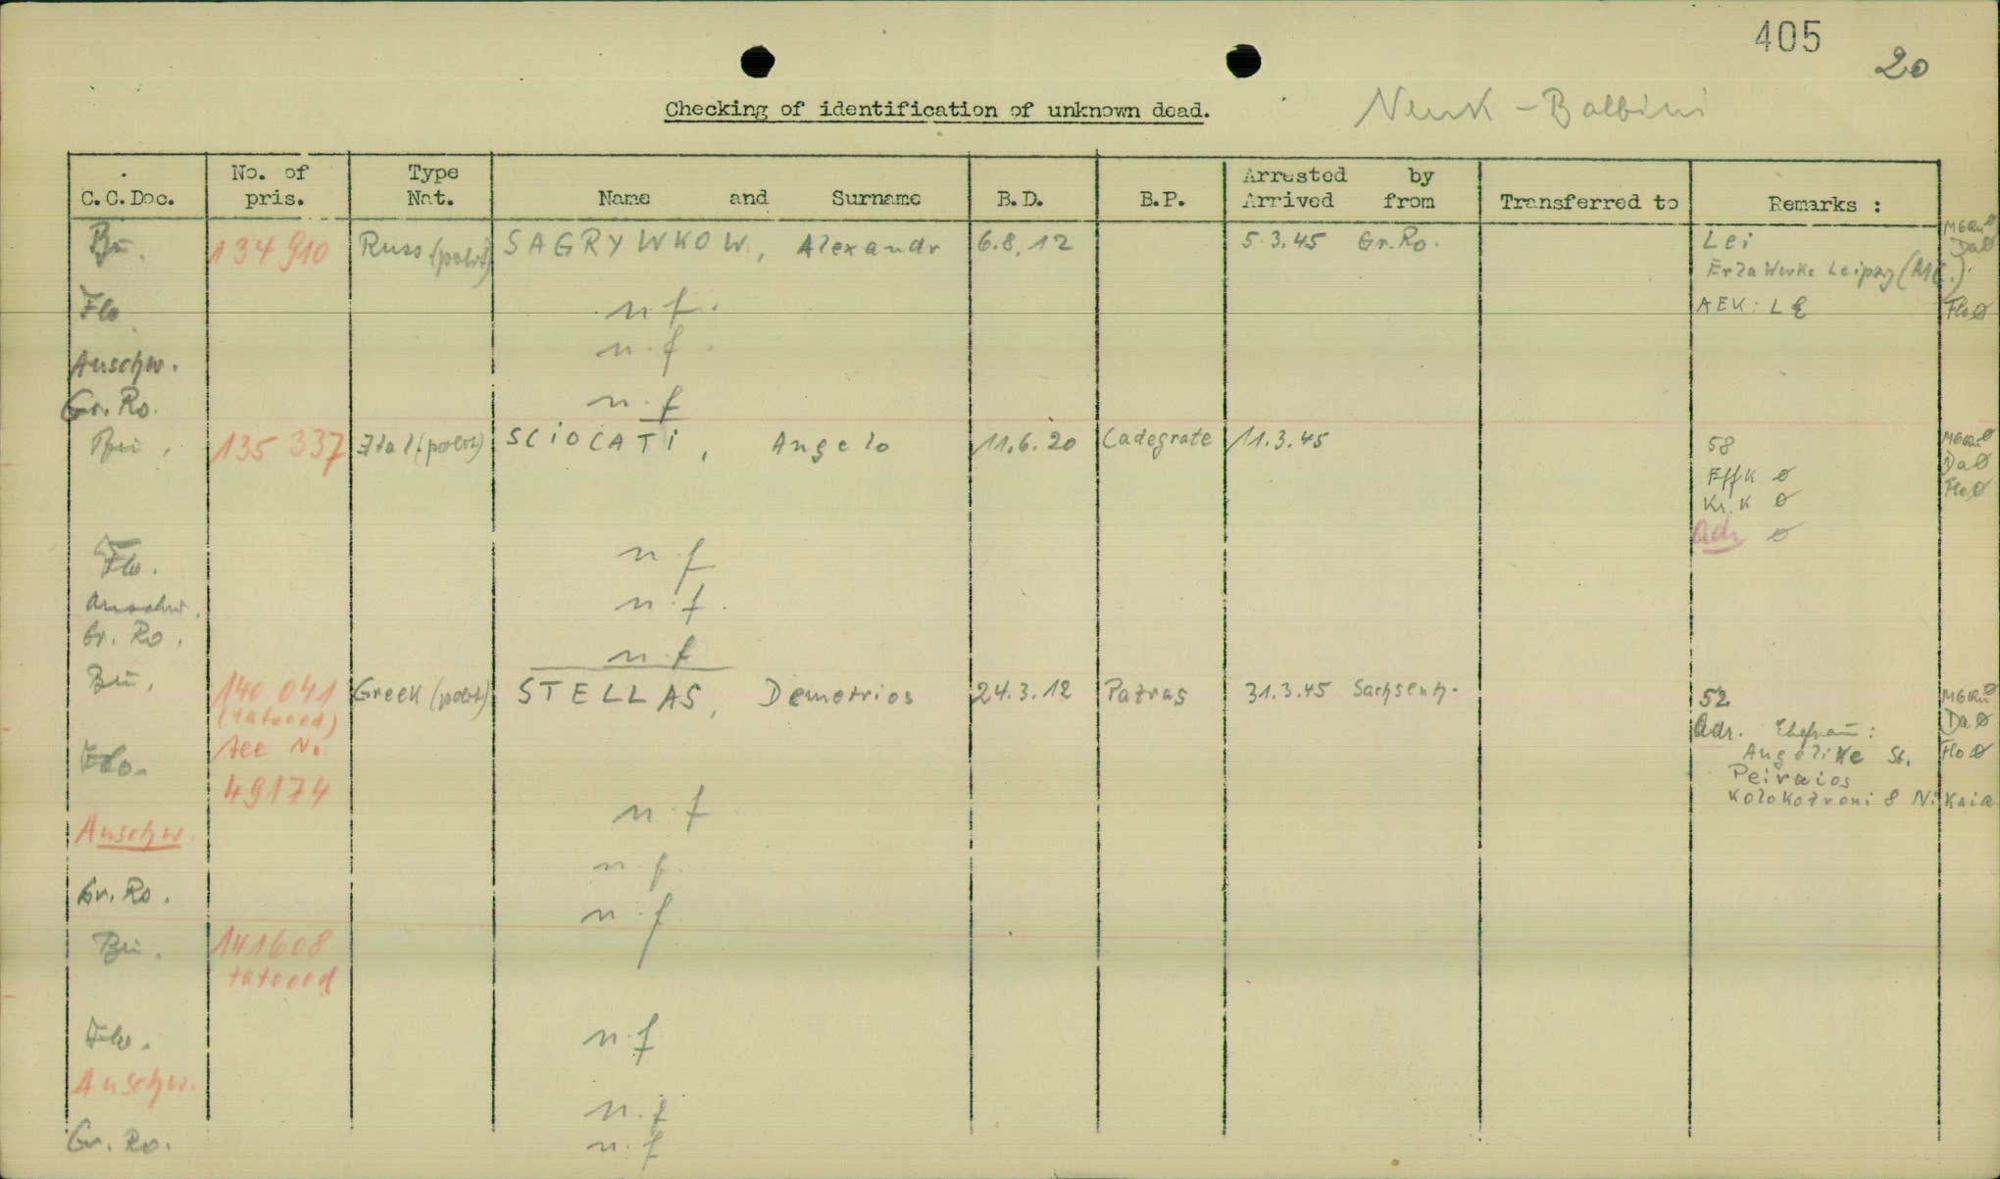 405
20
Checking of identification of unknown dead.
Neuk - Balbini
C.C.Doc. No. of pris. Type Nat. Name and Surname B.D. B.P. Arrested by Arrived from Transferred to Remarks :
Bu. 134 910 Russ (polit) SAGRYWKOW, Alexandr 6.8.12 5.3.45 Gr.Ro. Lei
Da Ø
Erla Werke Leipzig
Flo n f. AEK: LE Flo Ø
Auschw. n.f.
Gr. Ro. n.f
Bu. 135 337 Ital (polit) SCIOCATI, Angelo 11.6.20 Cadegrate 11.3.45 58
Da Ø
Effk Ø Flo Ø
Kr.K Ø
Adr Ø
Flo. n.f
Auschw. n.f.
Gr. Ro. n.f
Bu. 140 041 Greek (polit) STELLAS, Demetrios 24.3.12 Patras 31.3.45 Sachsenh. 52
(tatooed) Da Ø
Adr. Ehefrau:
Flo. see N. Angelike St. Flo Ø
49174 Peiraios
n f Kolokotroni 8 Nikaia
Auschw.
n.f.
Gr. Ro. n.f
Bu. 141608
tatooed
Flo. n.f
Auschw. n.f
Gr. Ro. n.f